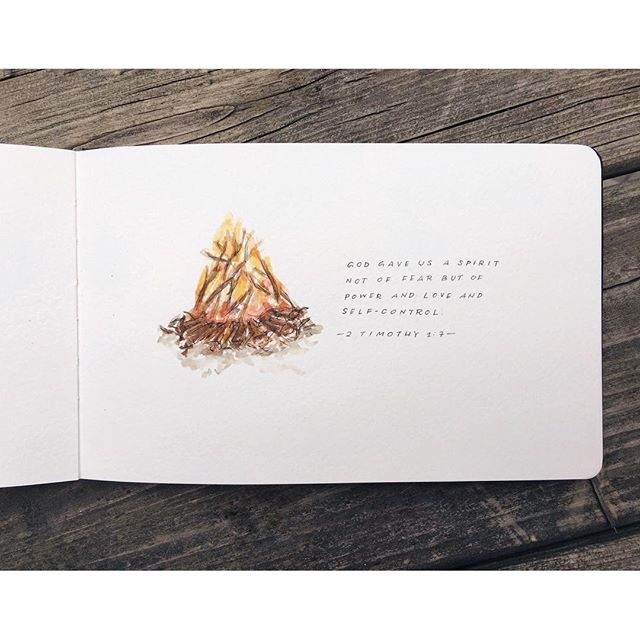 GOD GAVE US A SPIRIT
NOT OF FEAR BUT OF
POWER AND LOVE AND
SELF-CONTROL.
—2 TIMOTHY 1:7—